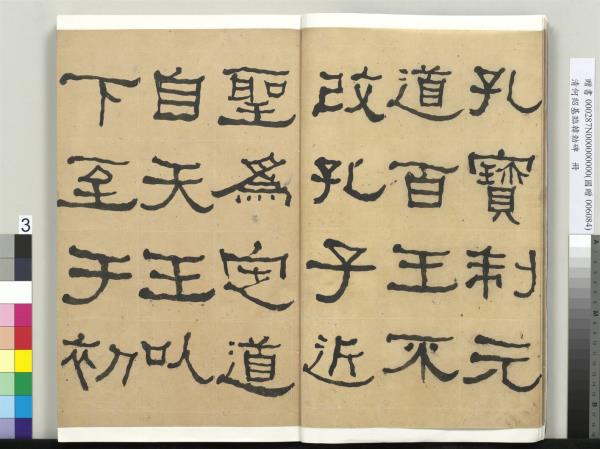 孔寶制元
道百王不
改孔子近
聖爲定道
自天王以
下至于初
贈書 000287N000000000(國贈 006084)
清何紹基臨韓勑碑 冊
3
A
M
B